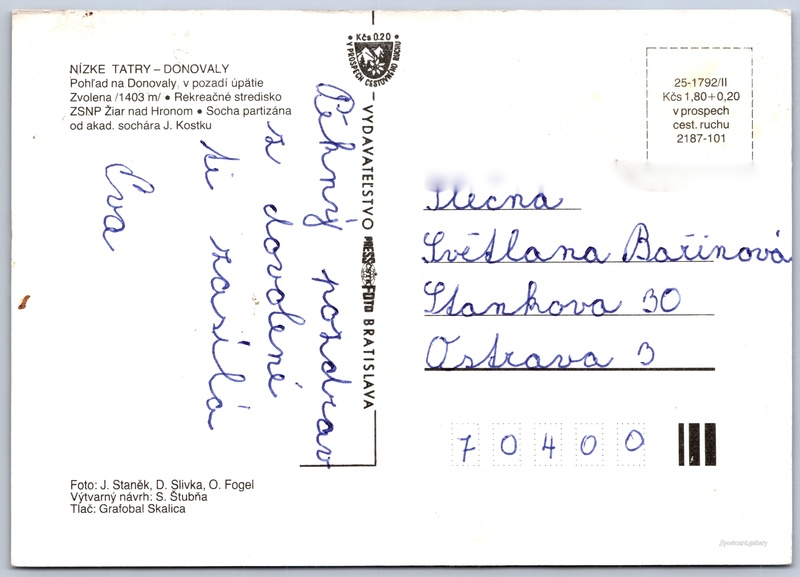 NÍZKE TATRY – DONOVALY
Pohľad na Donovaly, v pozadí úpätie
Zvolena /1403 m/ • Rekreačné stredisko
ZSNP Žiar nad Hronom • Socha partizána
od akad. sochára J. Kostku
Pěkný pozdrav
z dovolené
ti zasílá
Eva
Foto: J. Staněk, D. Slivka, O. Fogel
Výtvarný návrh: S. Štubňa
Tlač: Grafobal Skalica
• Kčs 0.20 •
V PROSPECH CESTOVNÉHO RUCHU
VYDAVATEĽSTVO PRESSFOTO BRATISLAVA
25-1792/II
Kčs 1,80+0,20
v prospech
cest. ruchu
2187-101
Slečna
Světlana Bařinová
Stankova 30
Ostrava 3
70400